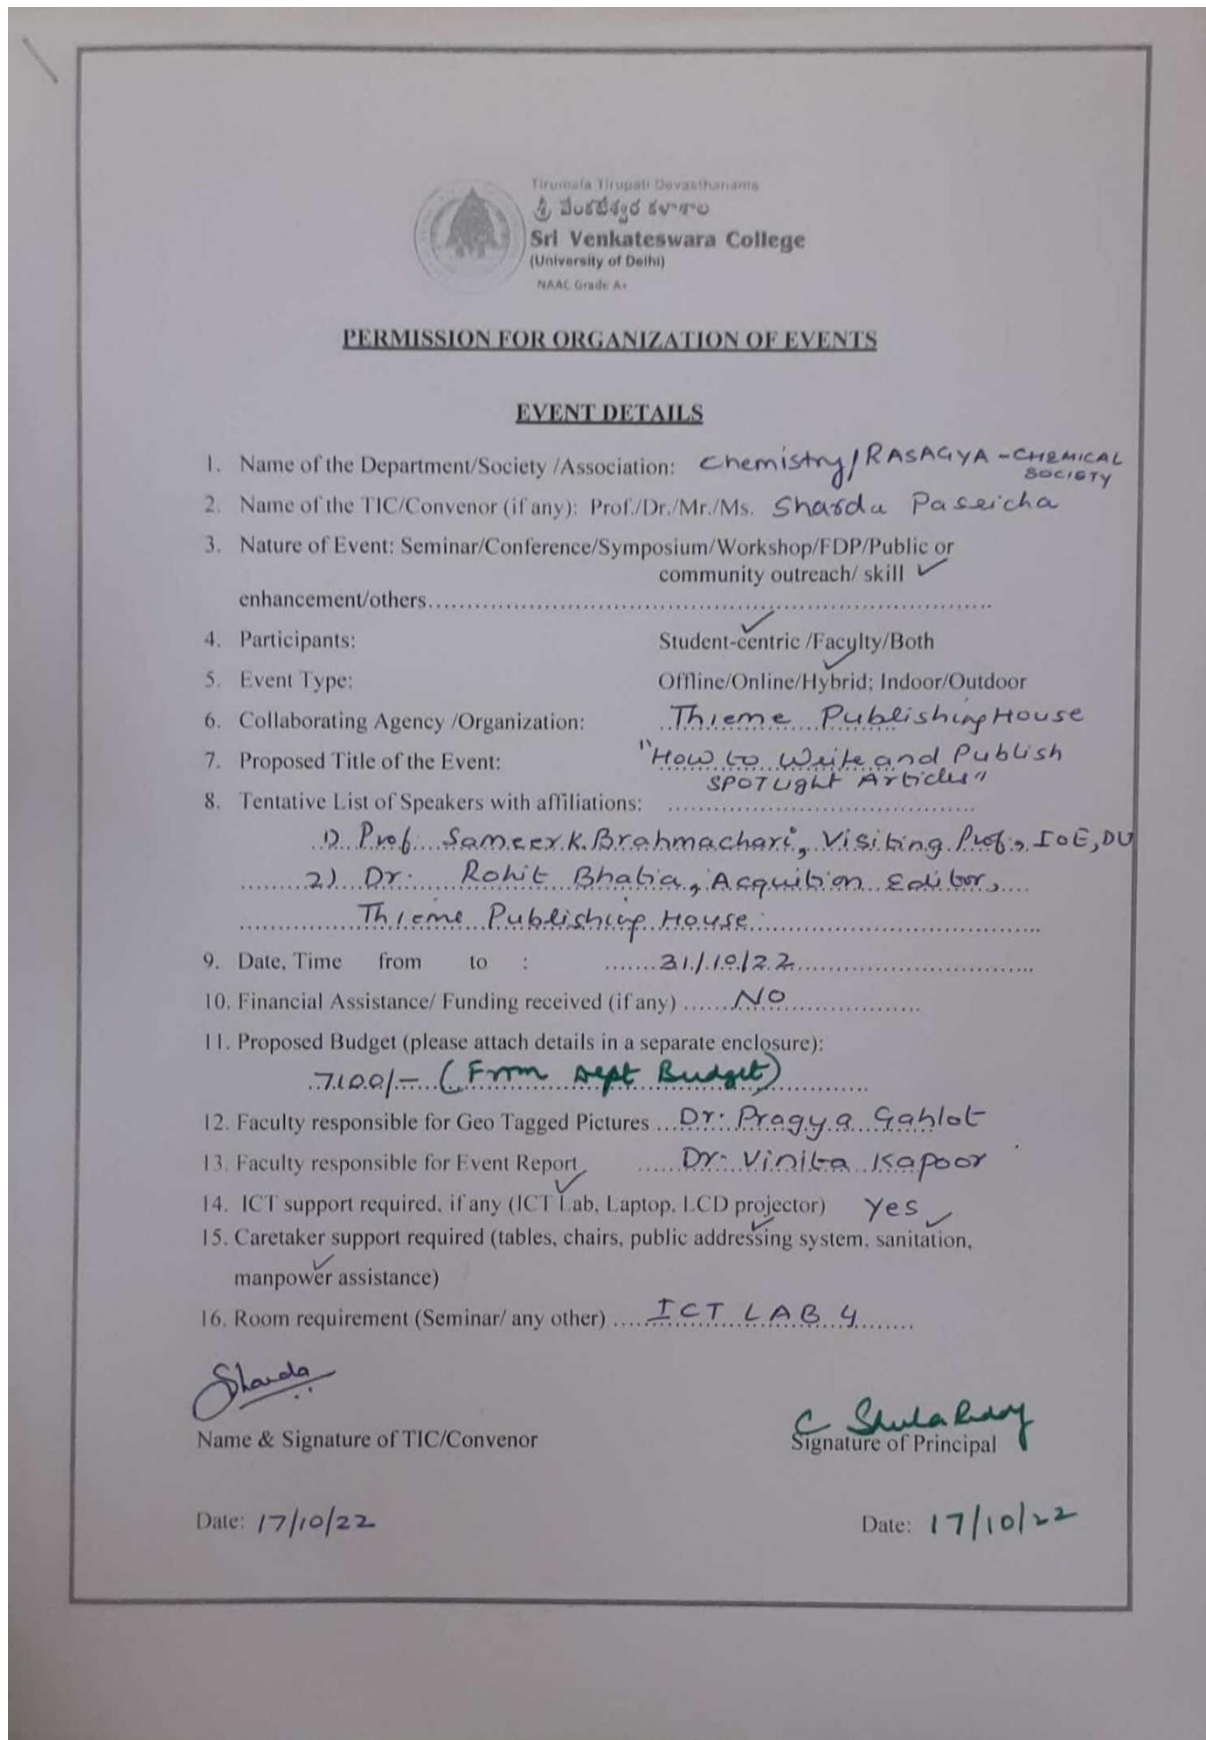 Tirumala Tirupati Devasthanams
శ్రీ వేంకటేశ్వర కళాశాల
Sri Venkateswara College
(University of Delhi)
NAAC Grade A+
PERMISSION FOR ORGANIZATION OF EVENTS
EVENT DETAILS
1. Name of the Department/Society /Association: Chemistry/RASAGYA - CHEMICAL
SOCIETY
2. Name of the TIC/Convenor (if any): Prof./Dr./Mr./Ms. Sharda Paseicha
3. Nature of Event: Seminar/Conference/Symposium/Workshop/FDP/Public or
community outreach/ skill ✓
enhancement/others....................
4. Participants: Student-centric /Faculty/Both
5. Event Type: Offline/Online/Hybrid; Indoor/Outdoor
6. Collaborating Agency /Organization: Thieme Publishing House
7. Proposed Title of the Event: "How to Write and Publish
SPOTLight Articles"
8. Tentative List of Speakers with affiliations: ....................
1) Prof. Sameer K. Brahmachari, Visiting Prof., IoE, DU
2) Dr. Rohit Bhatia, Acquition Editor,
Thieme Publishing House
9. Date, Time from to : 31/10/22
10. Financial Assistance/ Funding received (if any) NO
11. Proposed Budget (please attach details in a separate enclosure):
7100/- (From Dept Budget)
12. Faculty responsible for Geo Tagged Pictures Dr. Pragya Gahlot
13. Faculty responsible for Event Report Dr. Vinita Kapoor
14. ICT support required, if any (ICT Lab, Laptop, LCD projector) Yes
15. Caretaker support required (tables, chairs, public addressing system, sanitation,
manpower assistance)
16. Room requirement (Seminar/ any other) ICT LAB 4
Sharda
C Sheela Reddy
Name & Signature of TIC/Convenor Signature of Principal
Date: 17/10/22 Date: 17/10/22